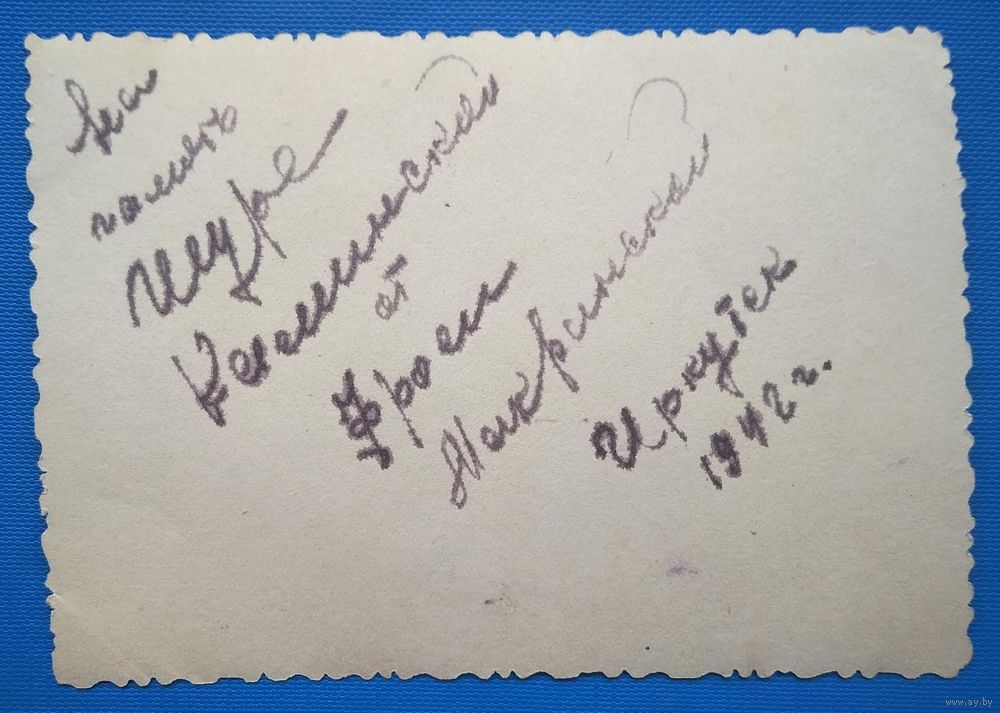 На
память
Шуре
Калининской
от
Фроси
Макринской
Иркутск
1942 г.
www.ay.by